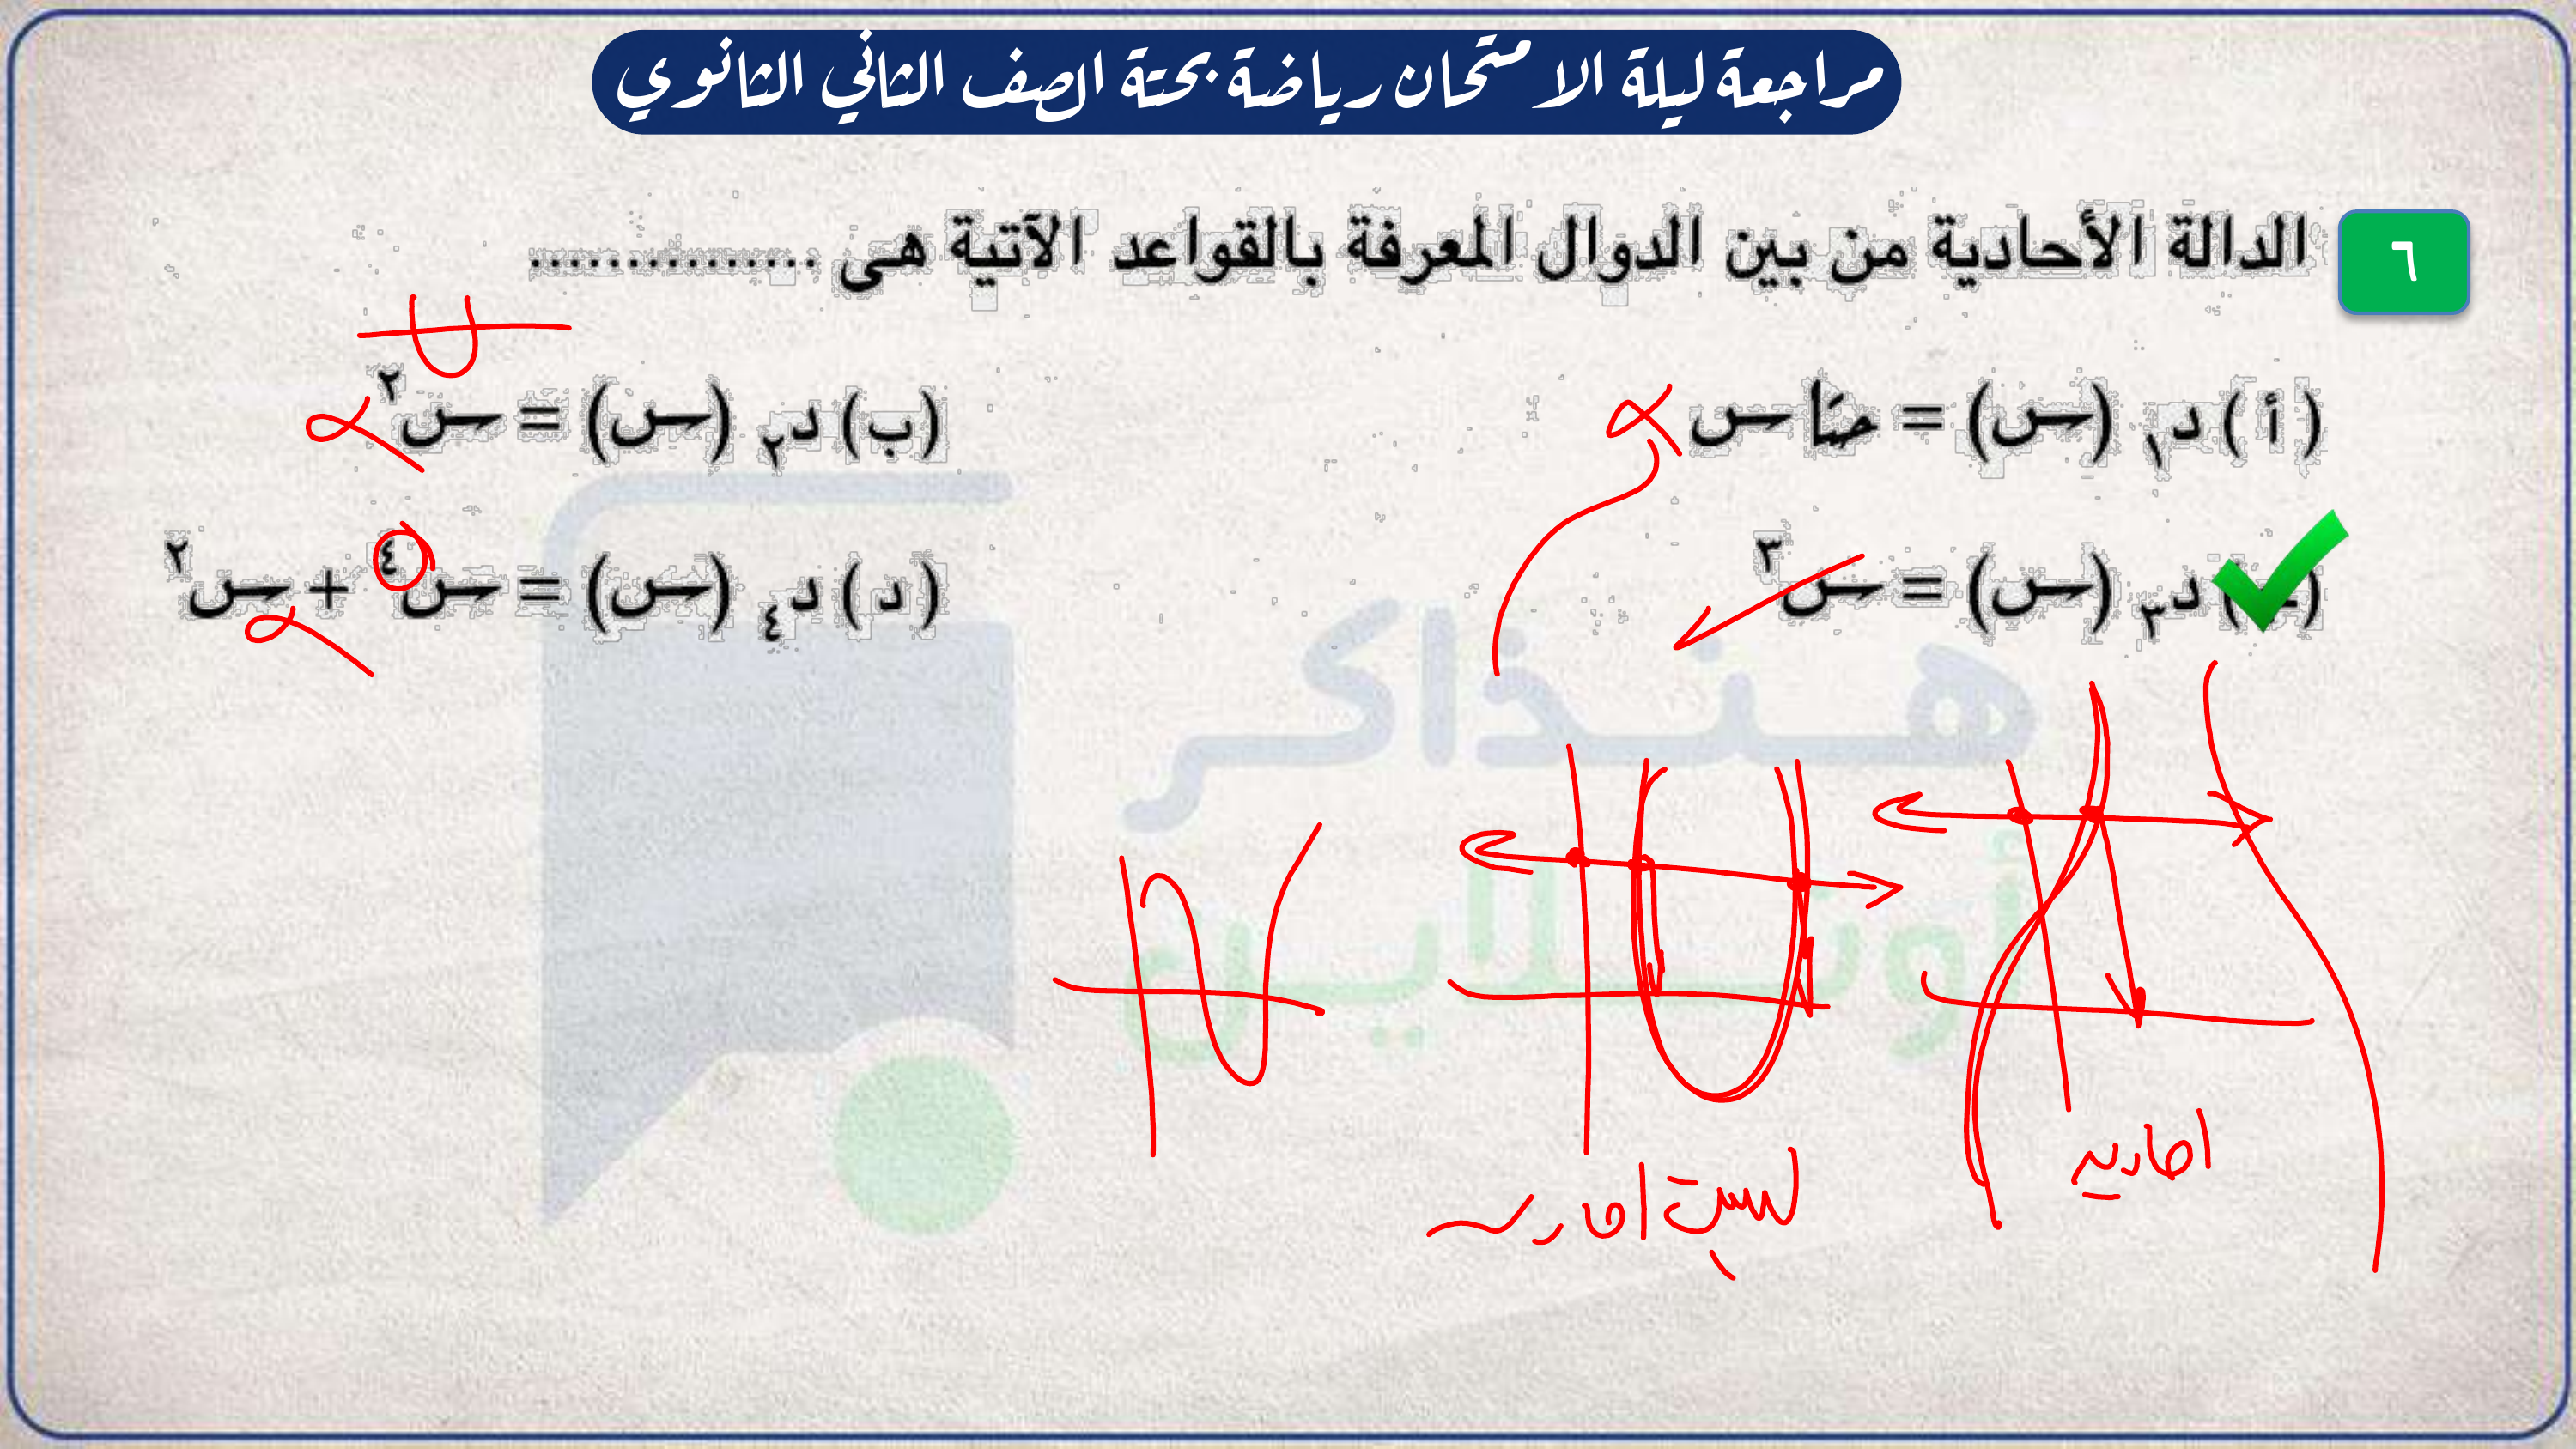 مراجعة ليلة الامتحان رياضة بحتة الصف الثاني الثانوي
٦ الدالة الأحادية من بين الدوال المعرفة بالقواعد الآتية هى ................
(أ) د١ (س) = حتا س
(ب) د٢ (س) = س٢
(حـ) د٣ (س) = س٣
(د) د٤ (س) = س٤ + س٢
هنذاكر
أونلاين
احاديه
ليست احاديه